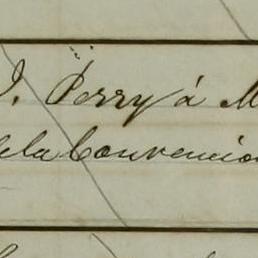 J. Perry á M
de la Convencion